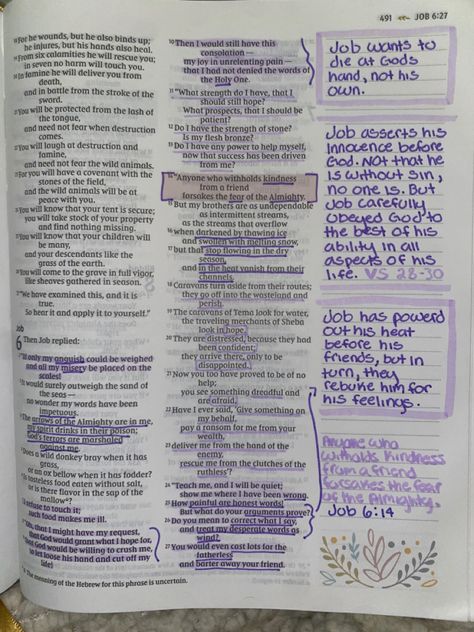 491 JOB 6:27
18For he wounds, but he also binds up;
he injures, but his hands also heal.
19From six calamities he will rescue you;
in seven no harm will touch you.
20In famine he will deliver you from
death,
and in battle from the stroke of the
sword.
21You will be protected from the lash of
the tongue,
and need not fear when destruction
comes.
22You will laugh at destruction and
famine,
and need not fear the wild animals.
23For you will have a covenant with the
stones of the field,
and the wild animals will be at
peace with you.
24You will know that your tent is secure;
you will take stock of your property
and find nothing missing.
25You will know that your children will
be many,
and your descendants like the
grass of the earth.
26You will come to the grave in full vigor,
like sheaves gathered in season.
27"We have examined this, and it is
true.
So hear it and apply it to yourself."
Job
6 Then Job replied:
2"If only my anguish could be weighed
and all my misery be placed on the
scales!
3It would surely outweigh the sand of
the seas —
no wonder my words have been
impetuous.
4The arrows of the Almighty are in me,
my spirit drinks in their poison;
God's terrors are marshaled
against me.
5Does a wild donkey bray when it has
grass,
or an ox bellow when it has fodder?
6Is tasteless food eaten without salt,
or is there flavor in the sap of the
mallow?
7I refuse to touch it;
such food makes me ill.
8"Oh, that I might have my request,
that God would grant what I hope for,
9that God would be willing to crush me,
to let loose his hand and cut off my
life!
10Then I would still have this
consolation —
my joy in unrelenting pain —
that I had not denied the words of
the Holy One.
11"What strength do I have, that I
should still hope?
What prospects, that I should be
patient?
12Do I have the strength of stone?
Is my flesh bronze?
13Do I have any power to help myself,
now that success has been driven
from me?
14"Anyone who withholds kindness
from a friend
forsakes the fear of the Almighty.
15But my brothers are as undependable
as intermittent streams,
as the streams that overflow
16when darkened by thawing ice
and swollen with melting snow,
17but that stop flowing in the dry
season,
and in the heat vanish from their
channels.
18Caravans turn aside from their routes;
they go off into the wasteland and
perish.
19The caravans of Tema look for water,
the traveling merchants of Sheba
look in hope.
20They are distressed, because they had
been confident;
they arrive there, only to be
disappointed.
21Now you too have proved to be of no
help;
you see something dreadful and
are afraid.
22Have I ever said, 'Give something on
my behalf,
pay a ransom for me from your
wealth,
23deliver me from the hand of the
enemy,
rescue me from the clutches of the
ruthless'?
24"Teach me, and I will be quiet;
show me where I have been wrong.
25How painful are honest words!
But what do your arguments prove?
26Do you mean to correct what I say,
and treat my desperate words as
wind?
27You would even cast lots for the
fatherless
and barter away your friend.
The meaning of the Hebrew for this phrase is uncertain.
Job wants to
die at Gods
hand, not his
own.
Job asserts his
innocence before
God. Not that he
is without sin,
no one is. But
Job carefully
obeyed God to
the best of his
ability in all
aspects of his
life. VS 28-30
Job has powerd
out his heat
before his
friends, but in
turn, they
rebuke him for
his feelings.
Anyone who
witholds Kindness
from a friend
forsakes the fear
of the Almighty.
Job 6:14